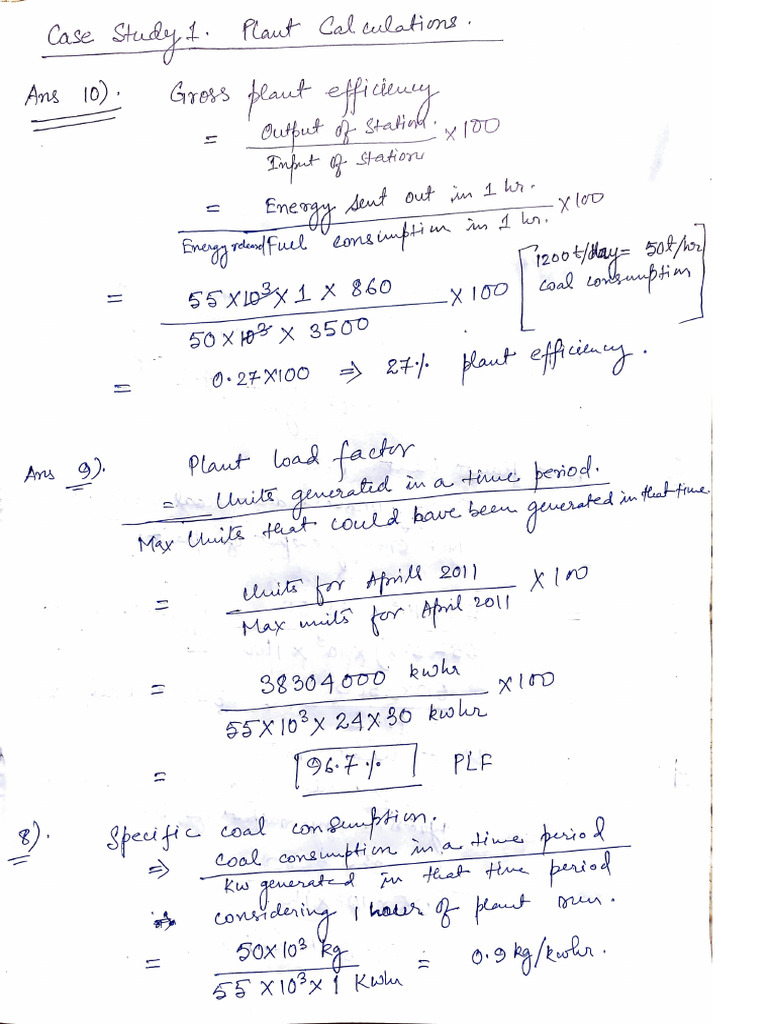 Case Study 1. Plant Calculations.
Ans 10). Gross plant efficiency
= Output of Station. / Input of Station × 100
= Energy sent out in 1 hr. / Energy released/Fuel consumption in 1 hr. × 100
= 55×10³×1×860 / 50×10³×3500 × 100 [1200t/day = 50t/hr coal consumption]
= 0.27×100 ⇒ 27% plant efficiency.
Ans 9). Plant load factor
= Units generated in a time period. / Max Units that could have been generated in that time.
= Units for Aprill 2011 / Max units for April 2011 × 100
= 38304000 kwhr / 55×10³×24×30 kwhr × 100
= 96.7% PLF
8). Specific coal consumption.
⇒ coal consumption in a time period / kw generated in that time period
considering 1 hour of plant run.
= 50×10³ kg / 55×10³×1 Kwhr = 0.9 kg/kwhr.